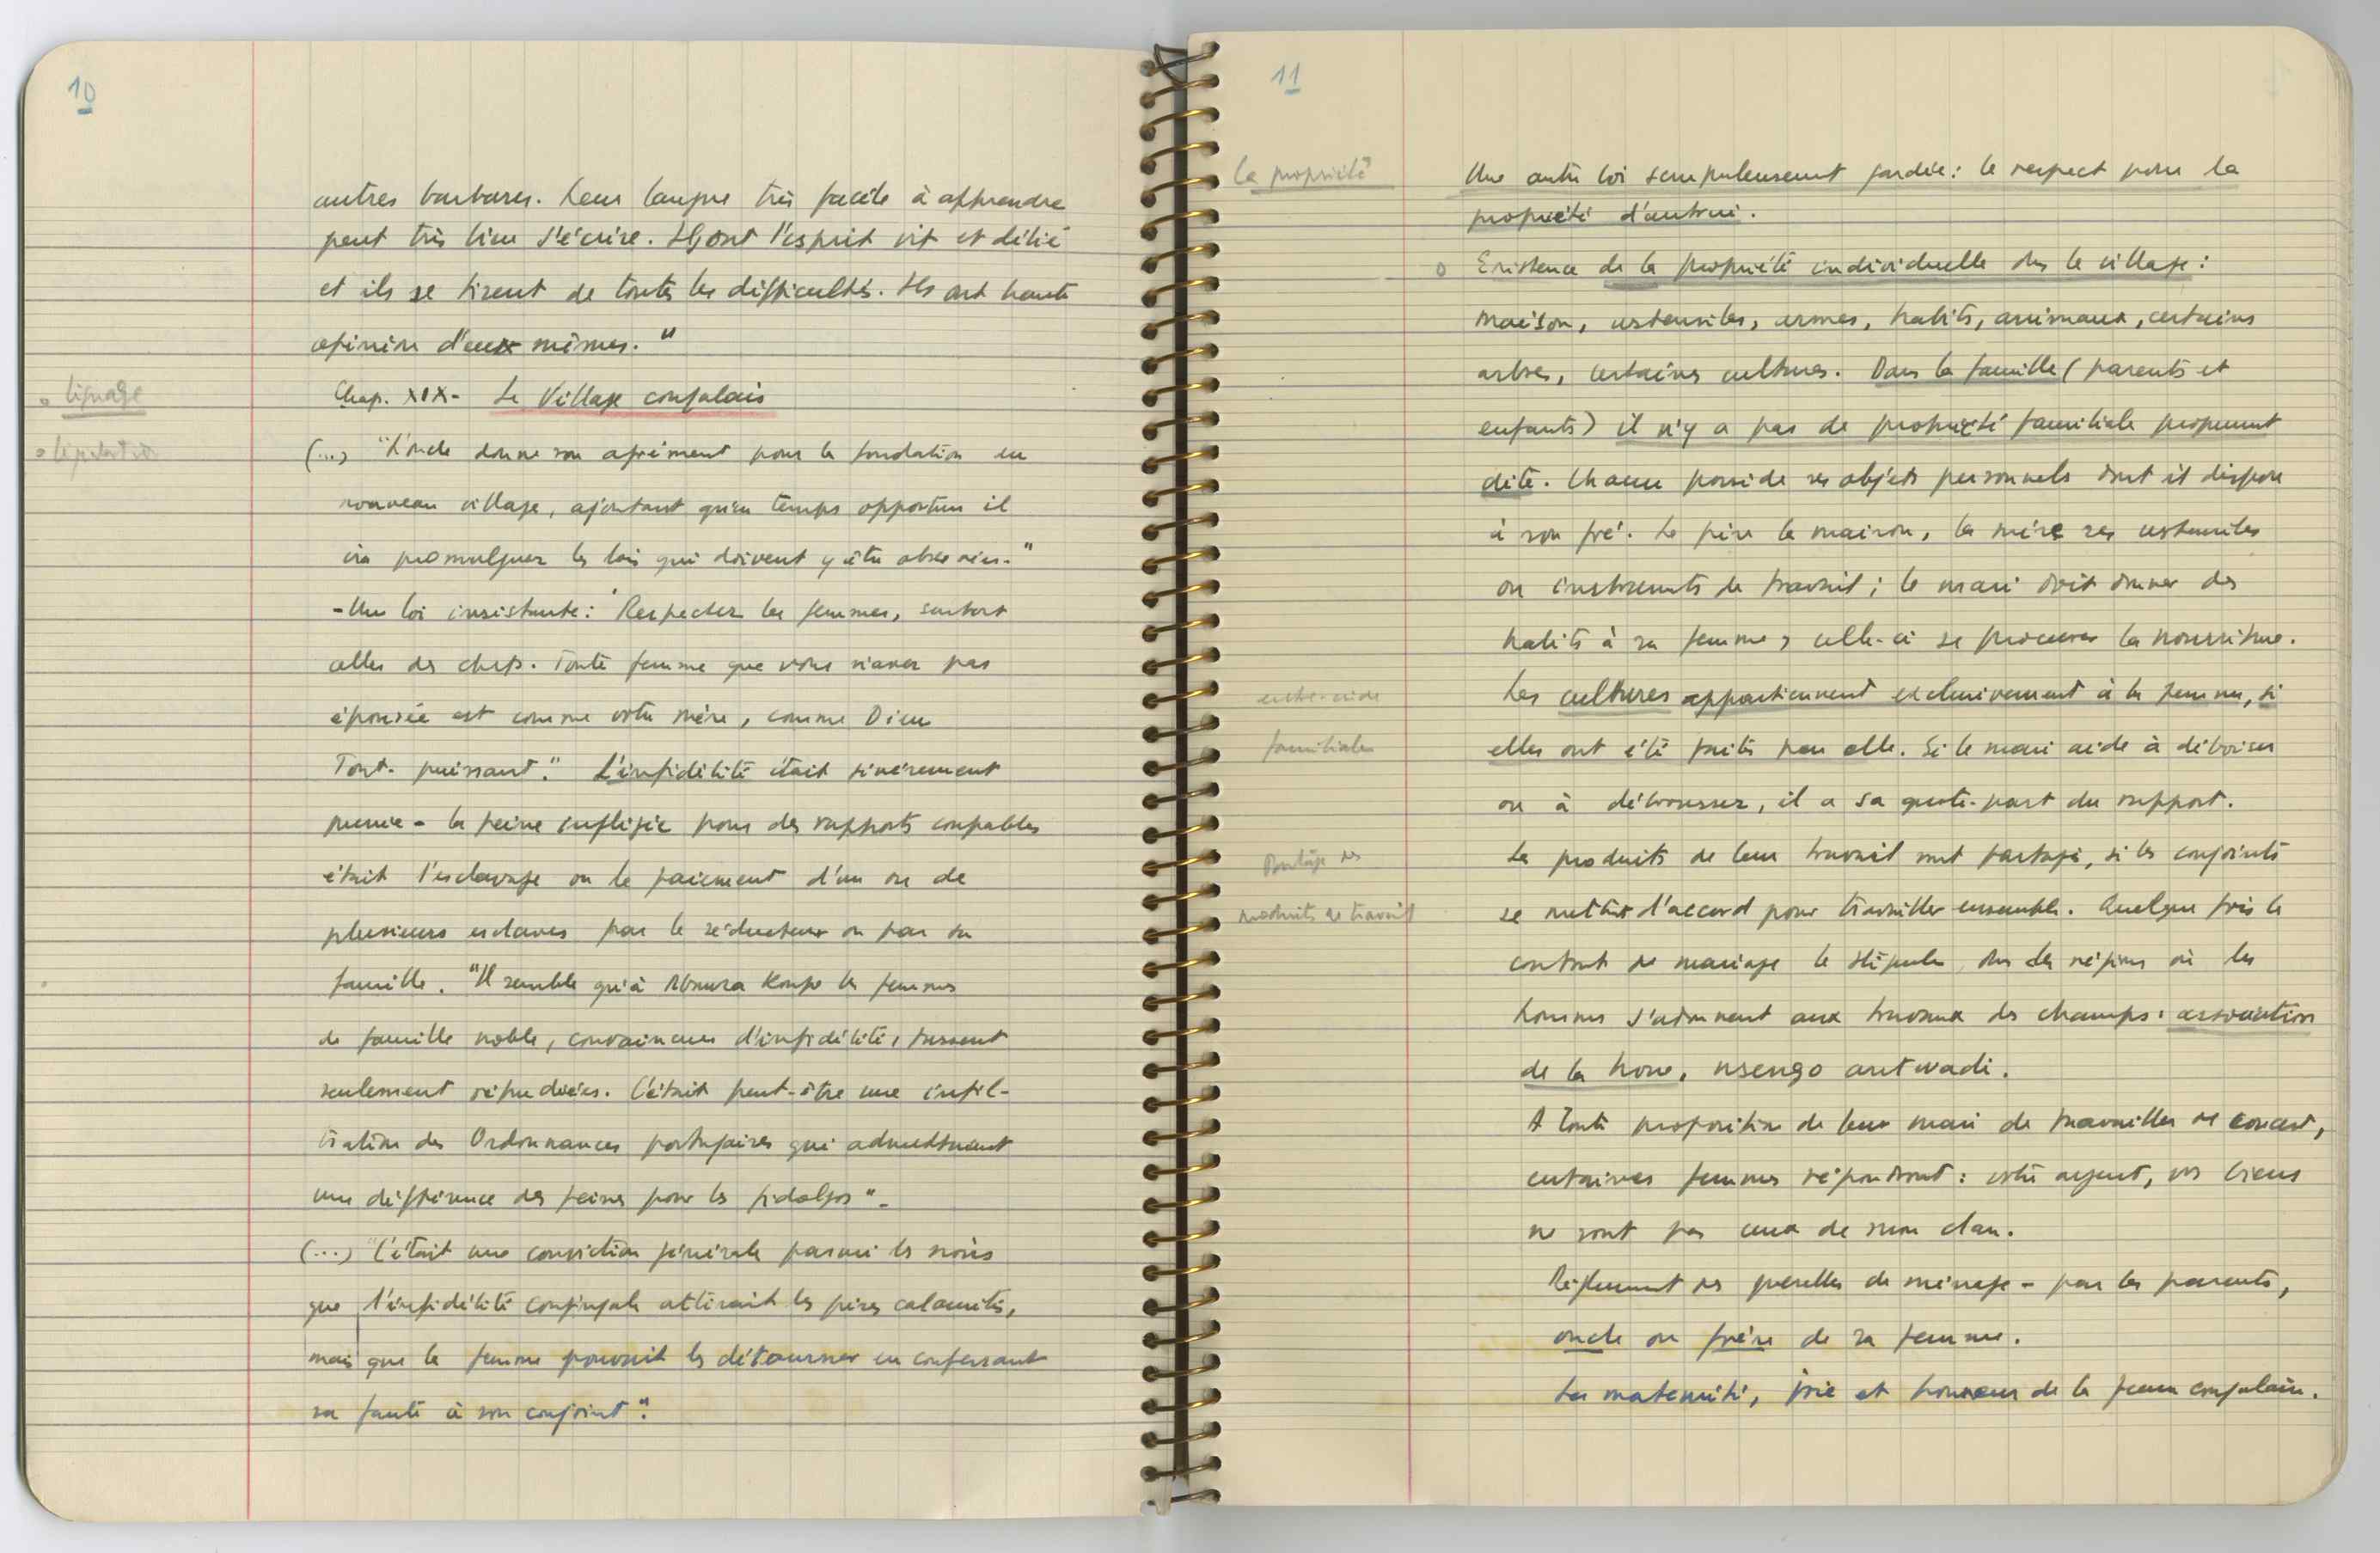 10
autres barbares. Leur langue très facile à apprendre
peut très bien s'écrire. Ils ont l'esprit vif et délié
et ils se tirent de toutes les difficultés. Ils ont haute
opinion d'eux mêmes."
lignage
Chap. XIX - Le Village congolais
législation
(...) "L'oncle donne son agrément pour la fondation du
nouveau village, ajoutant qu'en temps opportun il
ira promulguer les lois qui doivent y être observées."
- Une loi insistante: "Respecter les femmes, surtout
celles des chefs. Toute femme que vous n'avez pas
épousée est comme votre mère, comme Dieu
Tout-puissant." L'infidélité était sévèrement
punie - la peine infligée pour des rapports coupables
était l'esclavage ou le paiement d'un ou de
plusieurs esclaves par le séducteur ou par sa
famille. "Il semble qu'à Mbanza Kongo les femmes
de famille noble, convaincues d'infidélité, fussent
seulement répudiées. C'était peut-être une infil-
tration des Ordonnances portugaises qui admettaient
une différence des peines pour les fidalgos" -
(...) "C'était une conviction générale parmi les noirs
que l'infidélité conjugale attirait les pires calamités,
mais que la femme pouvait les détourner en confessant
sa faute à son conjoint".
11
la propriété
Une autre loi scrupuleusement gardée: le respect pour la
propriété d'autrui.
Existence de la propriété individuelle ds le village:
maison, ustensiles, armes, habits, animaux, certains
arbres, certaines cultures. Dans la famille (parents et
enfants) il n'y a pas de propriété familiale proprement
dite. Chacun possède ses objets personnels dont il dispose
à son gré. Le père la maison, la mère ses ustensiles
ou instruments de travail; le mari doit donner des
habits à sa femme, celle-ci se procurer la nourriture.
entre-aide
Les cultures appartiennent exclusivement à la femme, si
familiale
elles ont été faites par elle. Si le mari aide à déboiser
ou à débrousser, il a sa quote-part du rapport.
Partage des
Les produits de leur travail sont partagés, si les conjoints
produits de travail
se mettent d'accord pour travailler ensemble. Quelque fois le
contrat de mariage le stipule, ds les régions où les
hommes s'adonnent aux travaux des champs: association
de la houe, nsengo antwadi.
A toute proposition de leur mari de travailler de concert,
certaines femmes répondront: votre argent, vos biens
ne sont pas ceux de mon clan.
Règlement des querelles de ménage - par les parents,
oncle ou frère de sa femme.
La maternité, joie et honneur de la femme congolaise.